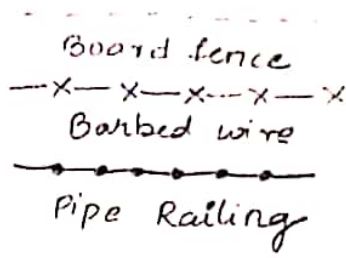 Board fence
Barbed wire
Pipe Railing